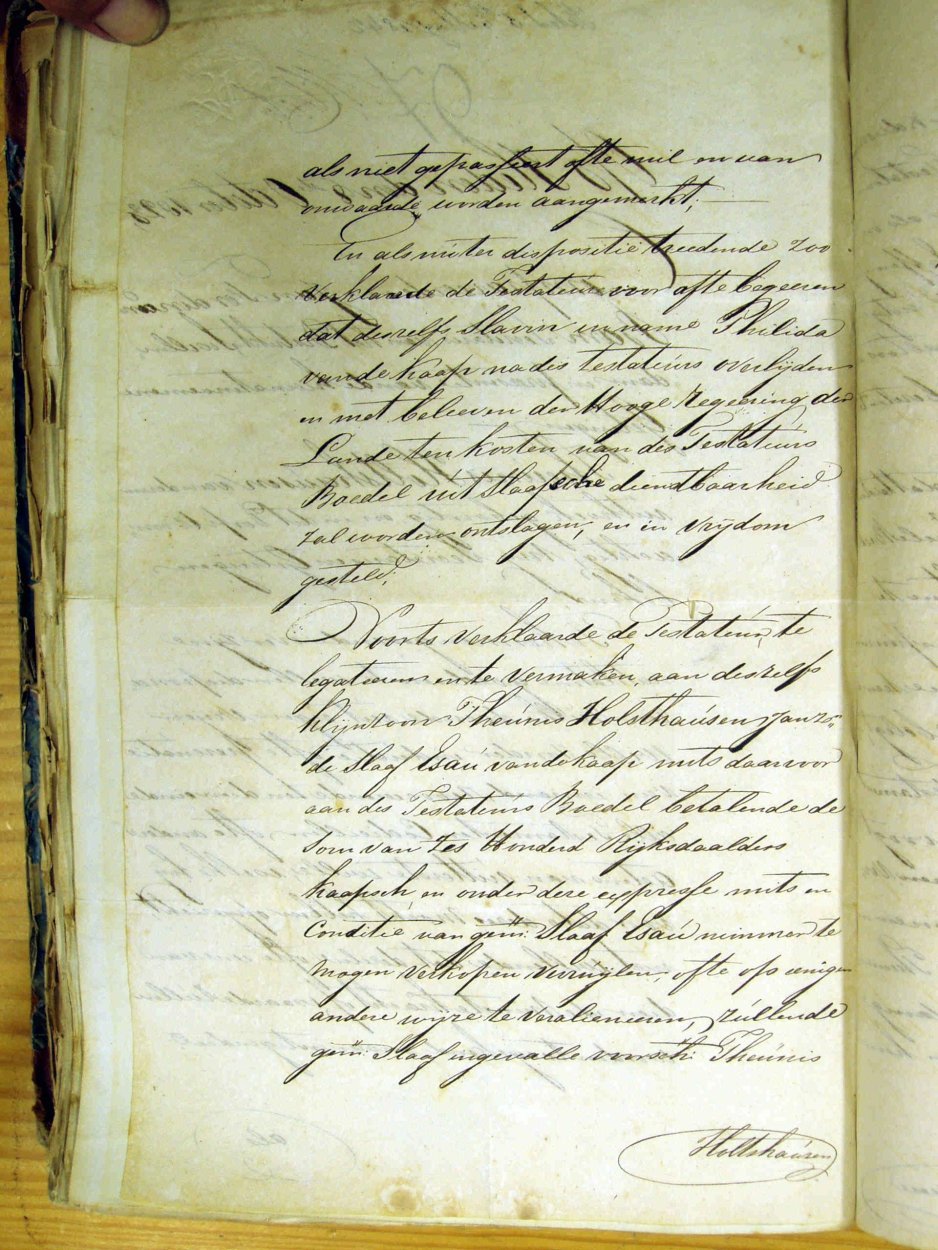 als niet gepasseert ofte nul en van
onwaarde worden aangemerkt;
En als niter dispositie treedende zoo
Verklaarde de Testateur voor afte begeeren
dat deszelfs Slavin in name Philida
van de Kaap na des testateurs overlijden
en met believen der Hooge Regeering der
Lande ten kosten van des Testateurs
Boedel uit Slaafsche dienstbaarheid
zal worden ontslagen, en in vrijdom
gesteld.
Voorts verklaarde de Testateur, te
legateeren en te vermaken, aan deszelfs
Klijnzoon Theunis Holsthausen Janzn:
de Slaaf Esau van de Kaap mits daarvoor
aan des Testateurs Boedel betalende de
Som van Zes Honderd Rijksdaalders
Kaapsch, en onder deze expresse mits en
Conditie van gem: Slaaf Esau nimmer te
mogen verkopen verruylen, ofte op eenigen
andere wijze te veralieneeren, zullende
gem: Slaaf ingevalle voorsch: Theunis
Holtshausen